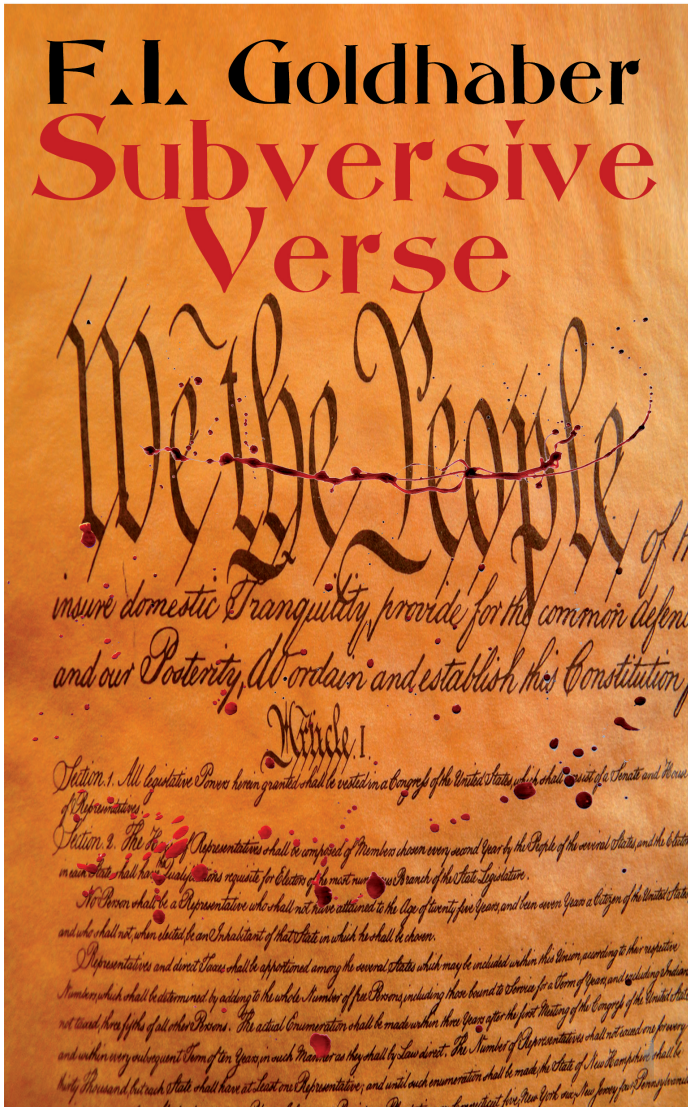 F.I. Goldhaber
Subversive
Verse
We the People
of
insure domestic Tranquility, provide for the common defenc
and our Posterity, do ordain and establish this Constitution
Article. I.
Section. 1. All legislative Powers herein granted shall be vested in a Congress of the United States, which shall consist of a Senate and House
of Representatives.
Section. 2. The of Representatives shall be composed of Members chosen every second Year by the People of the several States, and the Elector
in each State shall have Qualifications requisite for Electors of the most numerous Branch of the State Legislature.
No Person shall be a Representative who shall not have attained to the Age of twenty five Years, and been seven Years a Citizen of the United States
and who shall not, when elected, be an Inhabitant of that State in which he shall be chosen.
Representatives and direct Taxes shall be apportioned among the several States which may be included within this Union, according to their respective
Numbers, which shall be determined by adding to the whole Number of free Persons, including those bound to Service for a Term of Years, and excluding Indians
not taxed, three fifths of all other Persons. The actual Enumeration shall be made within three Years after the first Meeting of the Congress of the United State
and within every subsequent Term of ten Years, in such Manner as they shall by Law direct. The Number of Representatives shall not exceed one for every
thirty Thousand, but each State shall have at Least one Representative; and until such enumeration shall be made, the State of New Hampshire shall be
New York six, New Jersey four, Pennsylvania